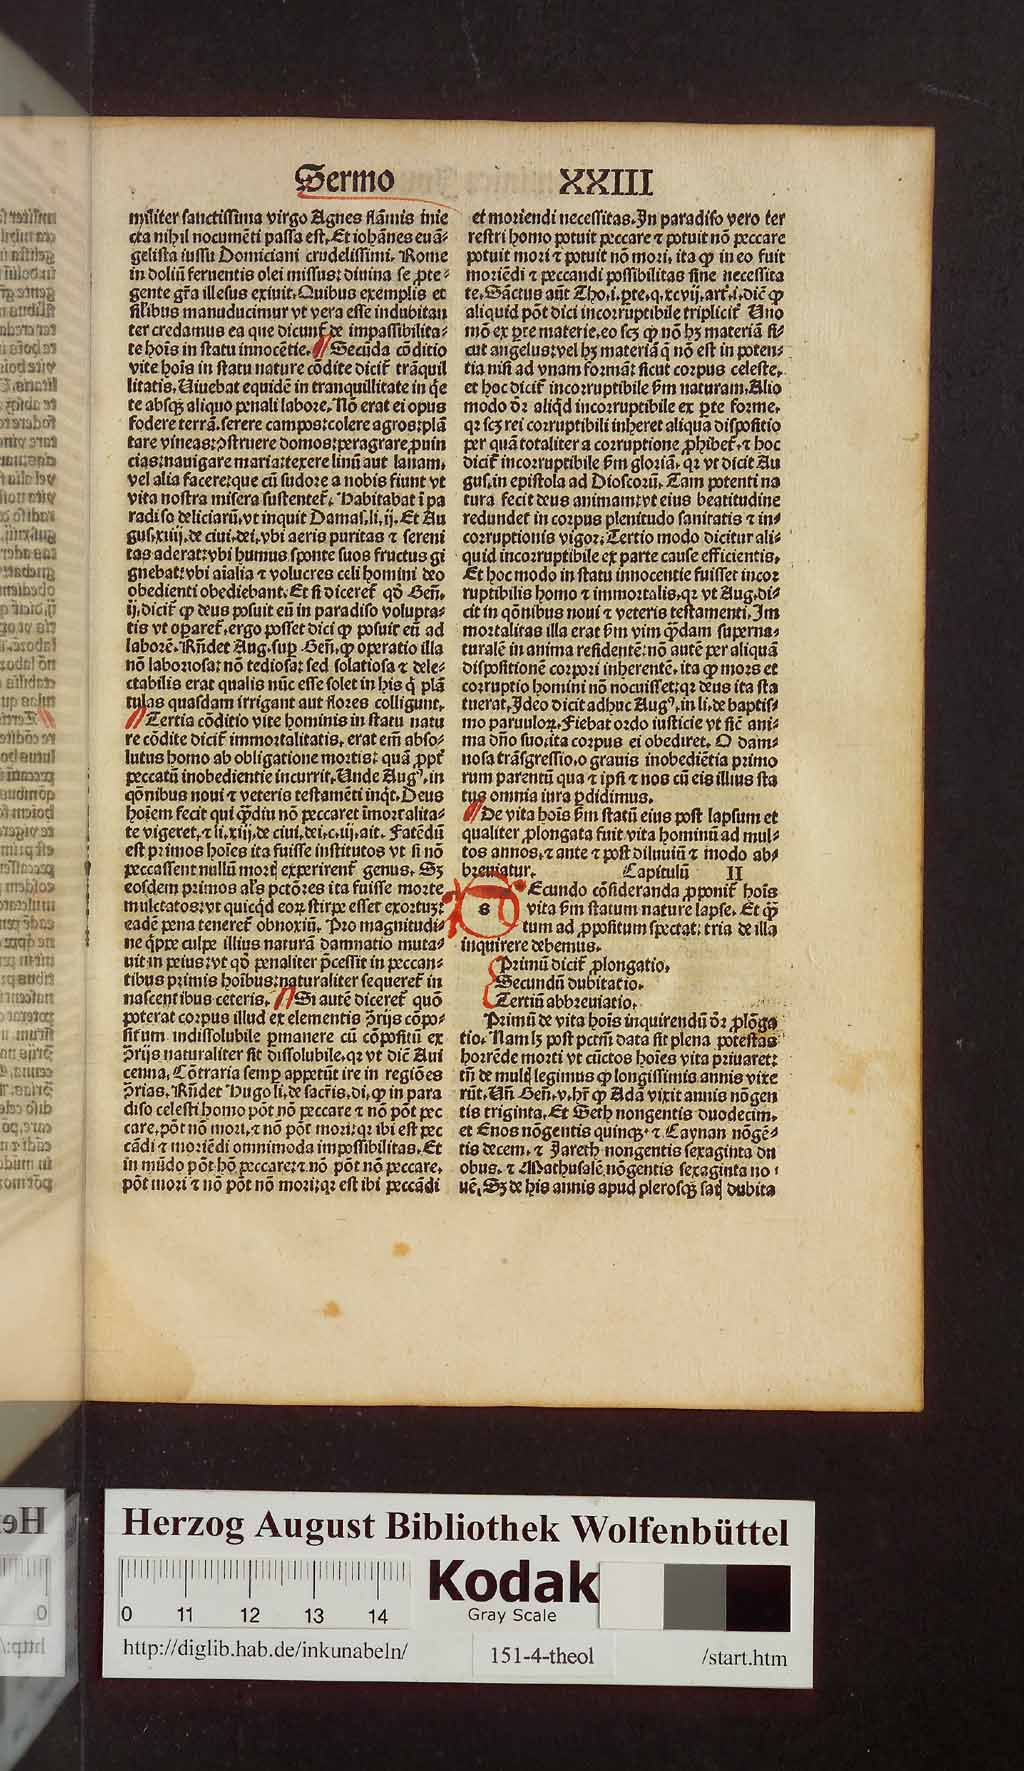 Sermo XXIII
militer sanctissima virgo Agnes flãmis inie
cta nihil nocumẽti passa est, Et iohãnes euã⸗
gelista iussu Domniciani crudelissimi. Rome
in doliũ feruentis olei missus: diuina se ꝓte⸗
gente gr̃a illesus exiuit. Quibus exemplis et
silibus manuducimur vt vera esse indubitan
ter credamus ea que dicunt̃ de impassibilita⸗
te hoĩs in statu innocẽtie. Secũda cõditio
vite hoĩs in statu nature cõdite dicit̃ trãquil
litatis. Uiuebat equidẽ in tranquillitate in q̃e
te absqꝫ aliquo penali labore. Nõ erat ei opus
fodere terrã. serere campos: colere agros: plã
tare vineas: ꝯstruere domos: peragrare ꝓuin
cias: nauigare maria: texere linũ aut lanam,
vel alia facere: que cũ sudore a nobis fiunt vt
vita nostra misera sustentet̃. Habitabat ĩ pa
radiso deliciarũ, vt inquit Damas. li. ij. Et Au
gus. xiiij. de ciui. dei. vbi aeris puritas ⁊ sereni
tas aderat: vbi humus sponte suos fructus gi
gnebat: vbi aĩalia ⁊ volucres celi homini deo
obedienti obediebant. Et si diceret̃ qõ Geñ.
ij. dicit̃ ꝙ deus posuit eũ in paradiso volupta⸗
tis vt oꝑaret̃. ergo posset dici ꝙ posuit eũ ad
laborẽ. Rñdet Aug. suꝑ Geñ. ꝙ operatio illa
nõ laboriosa: nõ tediosa: sed solatiosa ⁊ dele⸗
ctabilis erat qualis nũc esse solet in his q̃ plã
tulas quasdam irrigant aut flores colligunt.
Tertia cõditio vite hominis in statu natu
re cõdite dicit̃ immortalitatis. erat em̃ abso⸗
lutus homo ab obligatione mortis: quã ꝓpt̃
peccatũ inobedientie incurrit. Unde Augꝰ. in
qõnibus noui ⁊ veteris testamẽti inq̃t. Deus
hoĩem fecit qui q̃ꝫdiu nõ peccaret ĩmortalita⸗
te vigeret. ⁊ li. xiij. de ciui. dei. c. iij. ait. Fatẽdũ
est primos hoĩes ita fuisse institutos vt si nõ
peccassent nullũ mortꝭ experirent̃ genus. Sꝫ
eosdem primos al̃s pctõres ita fuisse morte
mulctatos: vt quicq̃d eoꝝ stirpe esset exortuꝫ:
eadẽ pena teneret̃ obnoxiũ. Pro magnitudi⸗
ne q̃ppe culpe illius naturã damnatio muta⸗
uit in peius: vt qõ penaliter p̃cessit in peccan⸗
tibus primis hoĩbus: naturaliter sequeret̃ in
nascentibus ceteris. Si autẽ diceret̃ quõ
poterat corpus illud ex elementis ꝯ̃rijs cõpo⸗
situm indissolubile ꝑmanere cũ cõpositũ ex
ꝯ̃rijs naturaliter sit dissolubile. qꝛ vt dic̃ Aui
cenna. Cõtraria semꝑ appetũt ire in regiões
ꝯ̃rias. Rñdet Hugo li. de sacr̃is. di. ꝙ in para
diso celesti homo põt nõ peccare ⁊ nõ põt pec
care. põt nõ mori. ⁊ nõ põt mori: qꝛ ibi est pec
cãdi ⁊ moriẽdi omnimoda impossibilitas. Et
in mũdo põt hõ peccare: ⁊ nõ põt nõ peccare.
põt mori ⁊ nõ põt nõ mori: qꝛ est ibi peccãdi
et moriendi necessitas. In paradiso vero ter
restri homo potuit peccare ⁊ potuit nõ peccare
potuit mori ⁊ potuit nõ mori, ita ꝙ in eo fuit
moriẽdi ⁊ peccandi possibilitas sine necessita
te. Sãctus aũt Tho. i. ꝑte. q. xcvij. art̃. i. dic̃ ꝙ
aliquid põt dici incorruptibile tripliciť. Uno
mõ ex ꝑte materie. eo scꝫ ꝙ nõ hꝫ materiã si⸗
cut angelus: vel hꝫ materiã q̃ nõ est in poten⸗
tia nisi ad vnam formã: sicut corpus celeste,
et hoc dicit̃ incorruptibile ẜm naturam. Alio
modo dr̃ aliq̃d incorruptibile ex ꝑte forme.
qꝛ scꝫ rei corruptibili inheret aliqua dispositio
per quã totaliter a corruptione ꝓhibet̃. ⁊ hoc
dicit̃ incorruptibile ẜm gloriã. qꝛ vt dicit Au
gus. in epistola ad Dioscorũ. Tam potenti na
tura fecit deus animam: vt eius beatitudine
redundet in corpus plenitudo sanitatis ⁊ in⸗
corruptionis vigor. Tertio modo dicitur ali⸗
quid incorruptibile ex parte cause efficientis.
Et hoc modo in statu innocentie fuisset incor
ruptibilis homo ⁊ immortalis. qꝛ vt Aug. di⸗
cit in qõnibus noui ⁊ veteris testamenti. Im
mortalitas illa erat ẜm vim q̃ndam superna⸗
turalẽ in anima residentẽ: nõ autẽ per aliquã
dispositionẽ corpori inherentẽ. ita ꝙ mors et
corruptio homini nõ nocuisset: qꝛ deus ita sta
tuerat. Ideo dicit adhuc Augꝰ. in li. de baptis⸗
mo paruuloꝝ. Fiebat ordo iusticie vt sic̃ ani⸗
ma dño suo: ita corpus ei obediret. O dam⸗
nosa trãsgressio. o grauis inobediẽtia primo
rum parentũ qua ⁊ ipsi ⁊ nos cũ eis illius sta
tus omnia iura ꝑdidimus.
De vita hoĩs ẜm statũ eius post lapsum et
qualiter ꝓlongata fuit vita hominũ ad mul⸗
tos annos. ⁊ ante ⁊ post diluuiũ ⁊ modo ab⸗
breuiatur. Capitulũ II
s Ecundo cõsideranda ꝓponit̃ hoĩs
vita ẜm statum nature lapse. Et q̃ꝫ
tum ad ꝓpositum spectat: tria de illa
inquirere debemus.
Primũ dicit̃ ꝓlongatio.
Secundũ dubitatio.
Tertiũ abbreuiatio.
Primũ de vita hoĩs inquirendũ dr̃ ꝓlõga
tio. Nam lꝫ post pctm̃ data sit plena potestas
horrẽde morti vt cũctos hoĩes vita priuaret:
tñ de multꝭ legimus ꝙ longissimis annis vixe
rũt. Uñ Geñ. v. hr̃ ꝙ Adã vixit annis nõgen
tis triginta. Et Seth nongentis duodecim.
et Enos nõgentis quinqꝫ. ⁊ Caynan nõgẽ⸗
tis decem. ⁊ Jareth nongentis sexaginta du
obus. ⁊ Mathusalẽ nõgentis sexaginta no⸗
uẽ. Sꝫ de his annis apud plerosqꝫ satꝭ dubita
Herzog August Bibliothek Wolfenbüttel
Kodak
Gray Scale
0 11 12 13 14
http://diglib.hab.de/inkunabeln/ 151-4-theol /start.htm